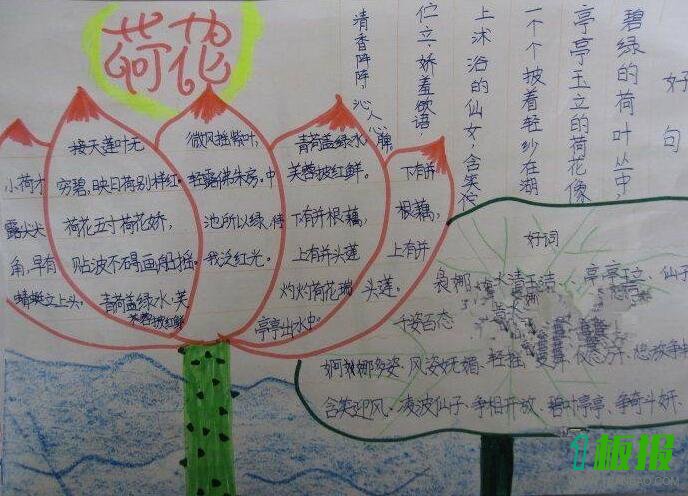 荷花
小荷才
露尖尖
角,早有
蜻蜓立上头。
接天莲叶无
穷碧,映日荷别样红。
荷花五寸荷花娇,
贴波不碍画船摇。
青荷盖绿水,芙
蓉披红鲜
微风摇紫叶,
轻露拂朱房。中
池所以绿,待
我泛红光。
青荷盖绿水,
芙蓉披红鲜。
下有并根藕,
上有并头莲
灼灼荷花瑞,
亭亭出水中。
下有并
根藕,
上有并
头莲。
好句
碧绿的荷叶丛中,
亭亭玉立的荷花像
一个个披着轻纱在湖
上沐浴的仙女,含笑伫
伫立,娇羞欲语,
清香阵阵,沁人心脾
好词
袅娜、水清玉洁、亭亭玉立、仙子
千姿百态
婀娜多姿、风姿妩媚、轻摇
含笑迎风、凌波仙子、争相开放、碧叶亭亭、争奇斗妍、
1板报
1BANBAO.COM